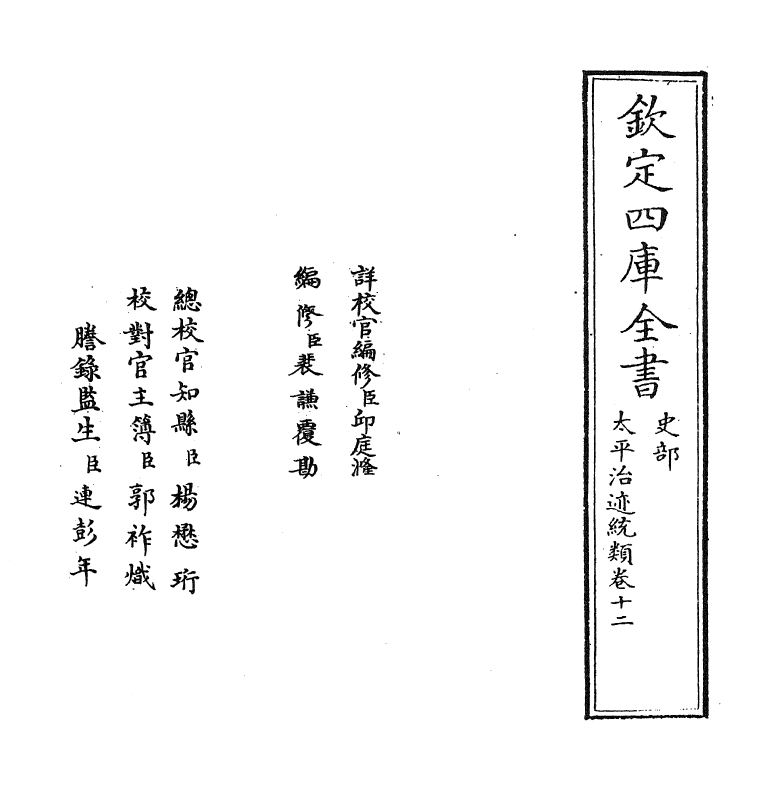 欽定四庫全書
史部
太平治迹統類卷十二
詳校官編修臣邱庭漋
編修臣裴謙覆勘
總校官知縣臣楊懋珩
校對官主簿臣郭祚熾
謄錄監生臣連彭年